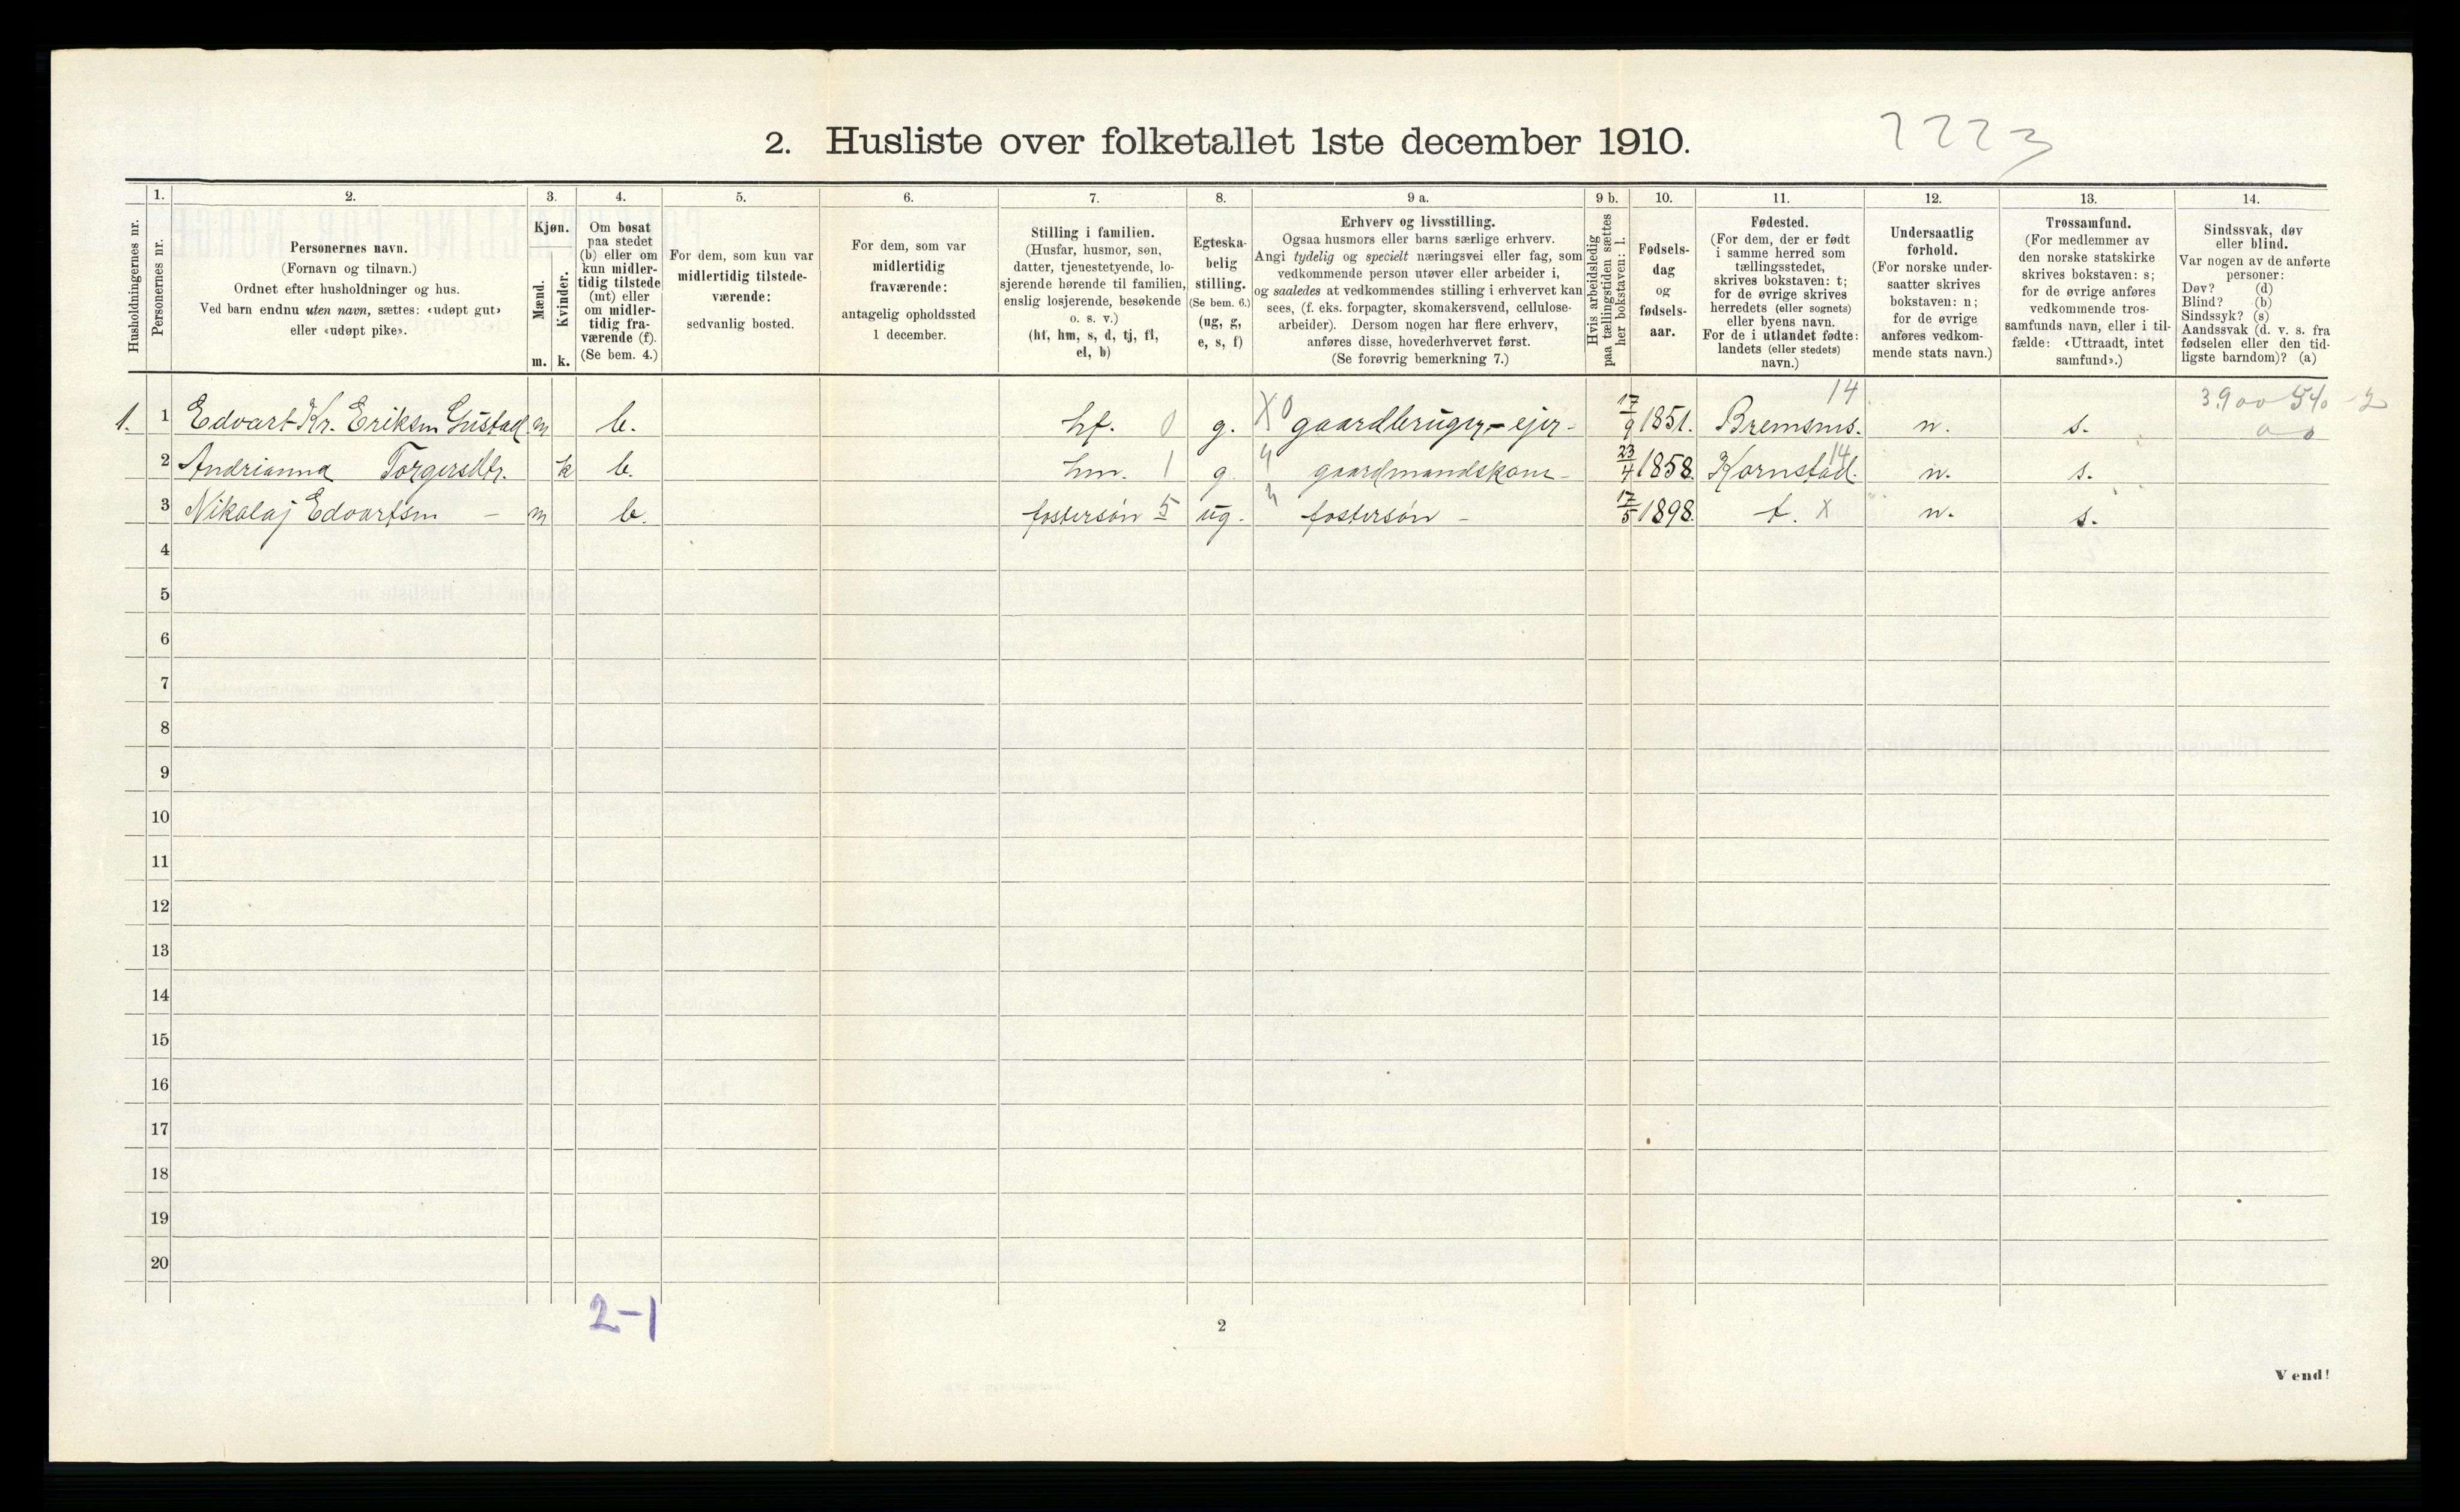 2. Husliste over folketallet 1ste december 1910.
2223
Husholdningernes nr.
1.
Personernes nr.
2.
Personernes navn.
(Fornavn og tilnavn.)
Ordnet efter husholdninger og hus.
Ved barn endnu uten navn, sættes: «udøpt gut»
eller «udøpt pike».
3.
Kjøn.
Mænd.
Kvinder.
m. k.
4.
Om bosat
paa stedet
(b) eller om
kun midler-
tidig tilstede
(mt) eller
om midler-
tidig fra-
værende (f).
(Se bem. 4.)
5.
For dem, som kun var
midlertidig tilstede-
værende:
sedvanlig bosted.
6.
For dem, som var
midlertidig
fraværende:
antagelig opholdssted
1 december.
7.
Stilling i familien.
(Husfar, husmor, søn,
datter, tjenestetyende, lo-
sjerende hørende til familien,
enslig losjerende, besøkende
o. s. v.)
(hf, hm, s, d, tj, fl,
el, b)
8.
Egteska-
belig
stilling.
(Se bem. 6.)
(ug, g,
e, s, f)
9 a.
Erhverv og livsstilling.
Ogsaa husmors eller barns særlige erhverv.
Angi tydelig og specielt næringsvei eller fag, som
vedkommende person utøver eller arbeider i,
og saaledes at vedkommendes stilling i erhvervet kan
sees, (f. eks. forpagter, skomakersvend, cellulose-
arbeider). Dersom nogen har flere erhverv,
anføres disse, hovederhvervet først.
(Se forøvrig bemerkning 7.)
9 b.
Hvis arbeidsledig
paa tællingstiden sættes
her bokstaven: l.
10.
Fødsels-
dag
og
fødsels-
aar.
11.
Fødested.
(For dem, der er født
i samme herred som
tællingsstedet,
skrives bokstaven: t;
for de øvrige skrives
herredets (eller sognets)
eller byens navn.
For de i utlandet fødte:
landets (eller stedets)
navn.)
12.
Undersaatlig
forhold.
(For norske under-
saatter skrives
bokstaven: n;
for de øvrige
anføres vedkom-
mende stats navn.)
13.
Trossamfund.
(For medlemmer av
den norske statskirke
skrives bokstaven: s;
for de øvrige anføres
vedkommende tros-
samfunds navn, eller i til-
fælde: «Uttraadt, intet
samfund».)
14.
Sindssvak, døv
eller blind.
Var nogen av de anførte
personer:
Døv? (d)
Blind? (b)
Sindssyk? (s)
Aandssvak (d. v. s. fra
fødselen eller den tid-
ligste barndom)? (a)
14 3900 540 - 2
1. 1 Edvart Kr. Eriksen Gustad m b. hf. 0 g. X0 gaardbruger - ejer - 17/9 1851. Bremsnes. n. s.
2 Andrianna Torgersdtr. k b. hm. 1 g 4 gaardmandskone - 23/4 1858. Kornstad. 14 n. s.
3 Nikolaj Edvartsen - m b. fostersøn 5 ug. 4 fostersøn - 17/5 1898. t. X n. s.
4
5
6
7
8
9
10
11
12
13
14
15
16
17
18
19
20
2-1
2
Vend!